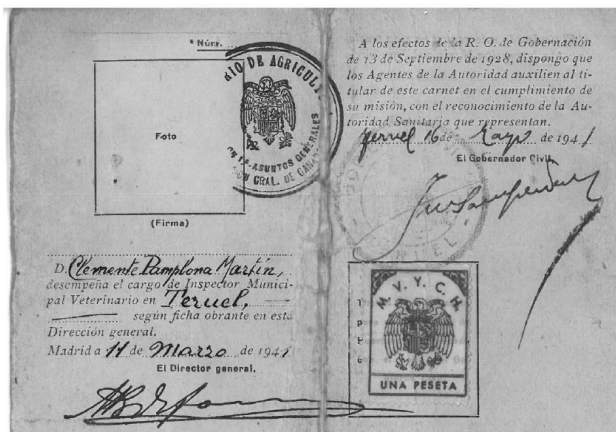 * Núm.
MINISTERIO DE AGRICULTURA
ASUNTOS GENERALES
GRAL. DE GANAD
Foto
(Firma)
D. Clemente Pamplona Martín,
desempeña el cargo de Inspector Munici-
pal Veterinario en Teruel,
según ficha obrante en esta
Dirección general.
Madrid a 11 de Marzo de 1941
El Director general.
A los efectos de la R. O. de Gobernación
de 13 de Septiembre de 1928, dispongo que
los Agentes de la Autoridad auxilien al ti-
tular de este carnet en el cumplimiento de
su misión, con el reconocimiento de la Au-
toridad Sanitaria que representan.
Teruel 16 de Mayo de 1941
El Gobernador Civil,
M. V. Y. C. H.
UNA PESETA